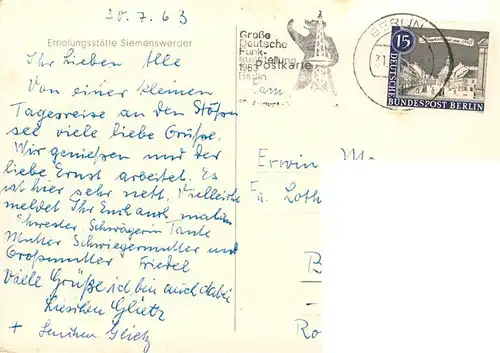 30.7.63
Erholungsstätte Siemenswerder
Ihr Lieben Alle
Von einer kleinen
Tagesreise an den Stößen
see viele liebe Grüße.
Wir genießen und der
liebe Ernst arbeitet. Es
ist hier sehr nett, vielleicht
meldet Ihr Euch auch mal
Schwester Schwägerin Tante
Mutter Schwiegermutter und
Großmutter Friedel
Viele Grüße ich bin auch dabei
Lieschen
+
Große
Deutsche
Funk-
ausstellung
1963
Berlin
Postkarte
Fam.
BERLIN
15
DEUTSCHE
BUNDESPOST BERLIN
Erwin
Fa. Loth
B
Ro